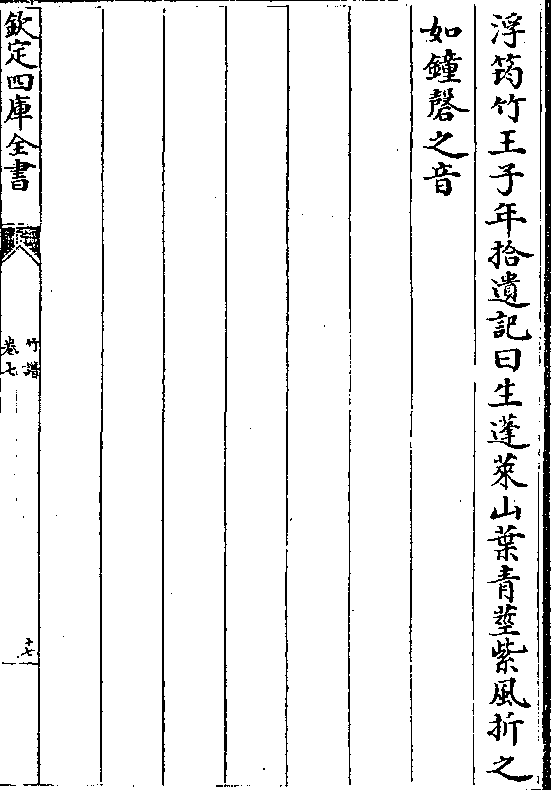 浮筠竹王子年拾遺記曰生蓬萊山葉青莖紫風折之
如鐘磬之音
欽定四庫全書
竹譜
卷七
十七